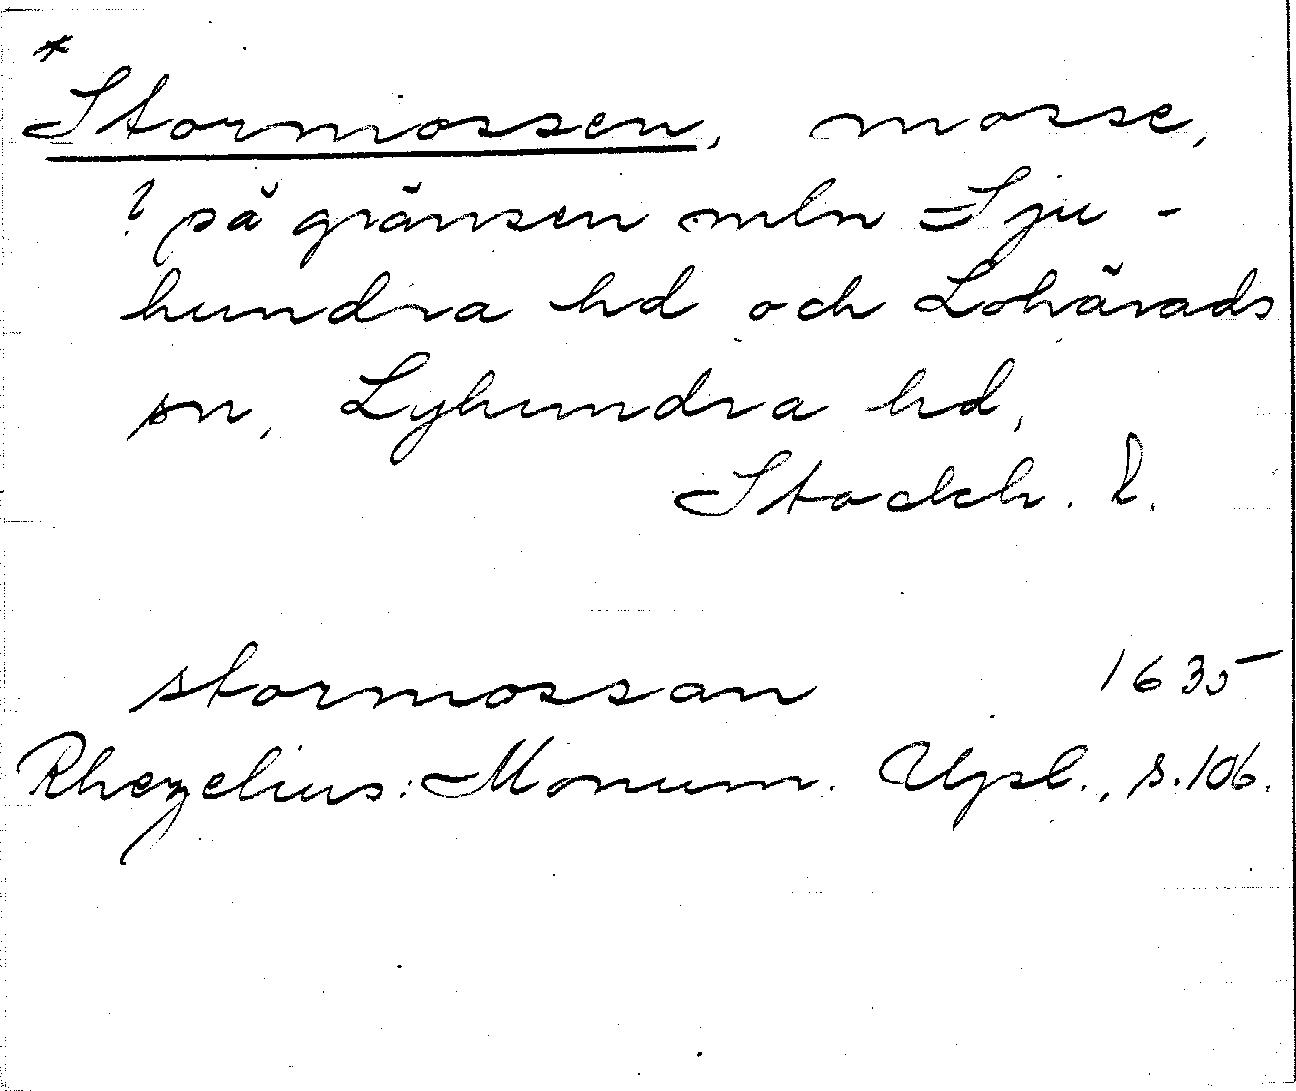 * Stormossen, mosse,
? på gränsen mln Sju-
hundra hd och Lohärads
sn, Lyhundra hd,
Stockh. l.
stormossan 1635
Rhezelius: Monum. Upl., s. 106.